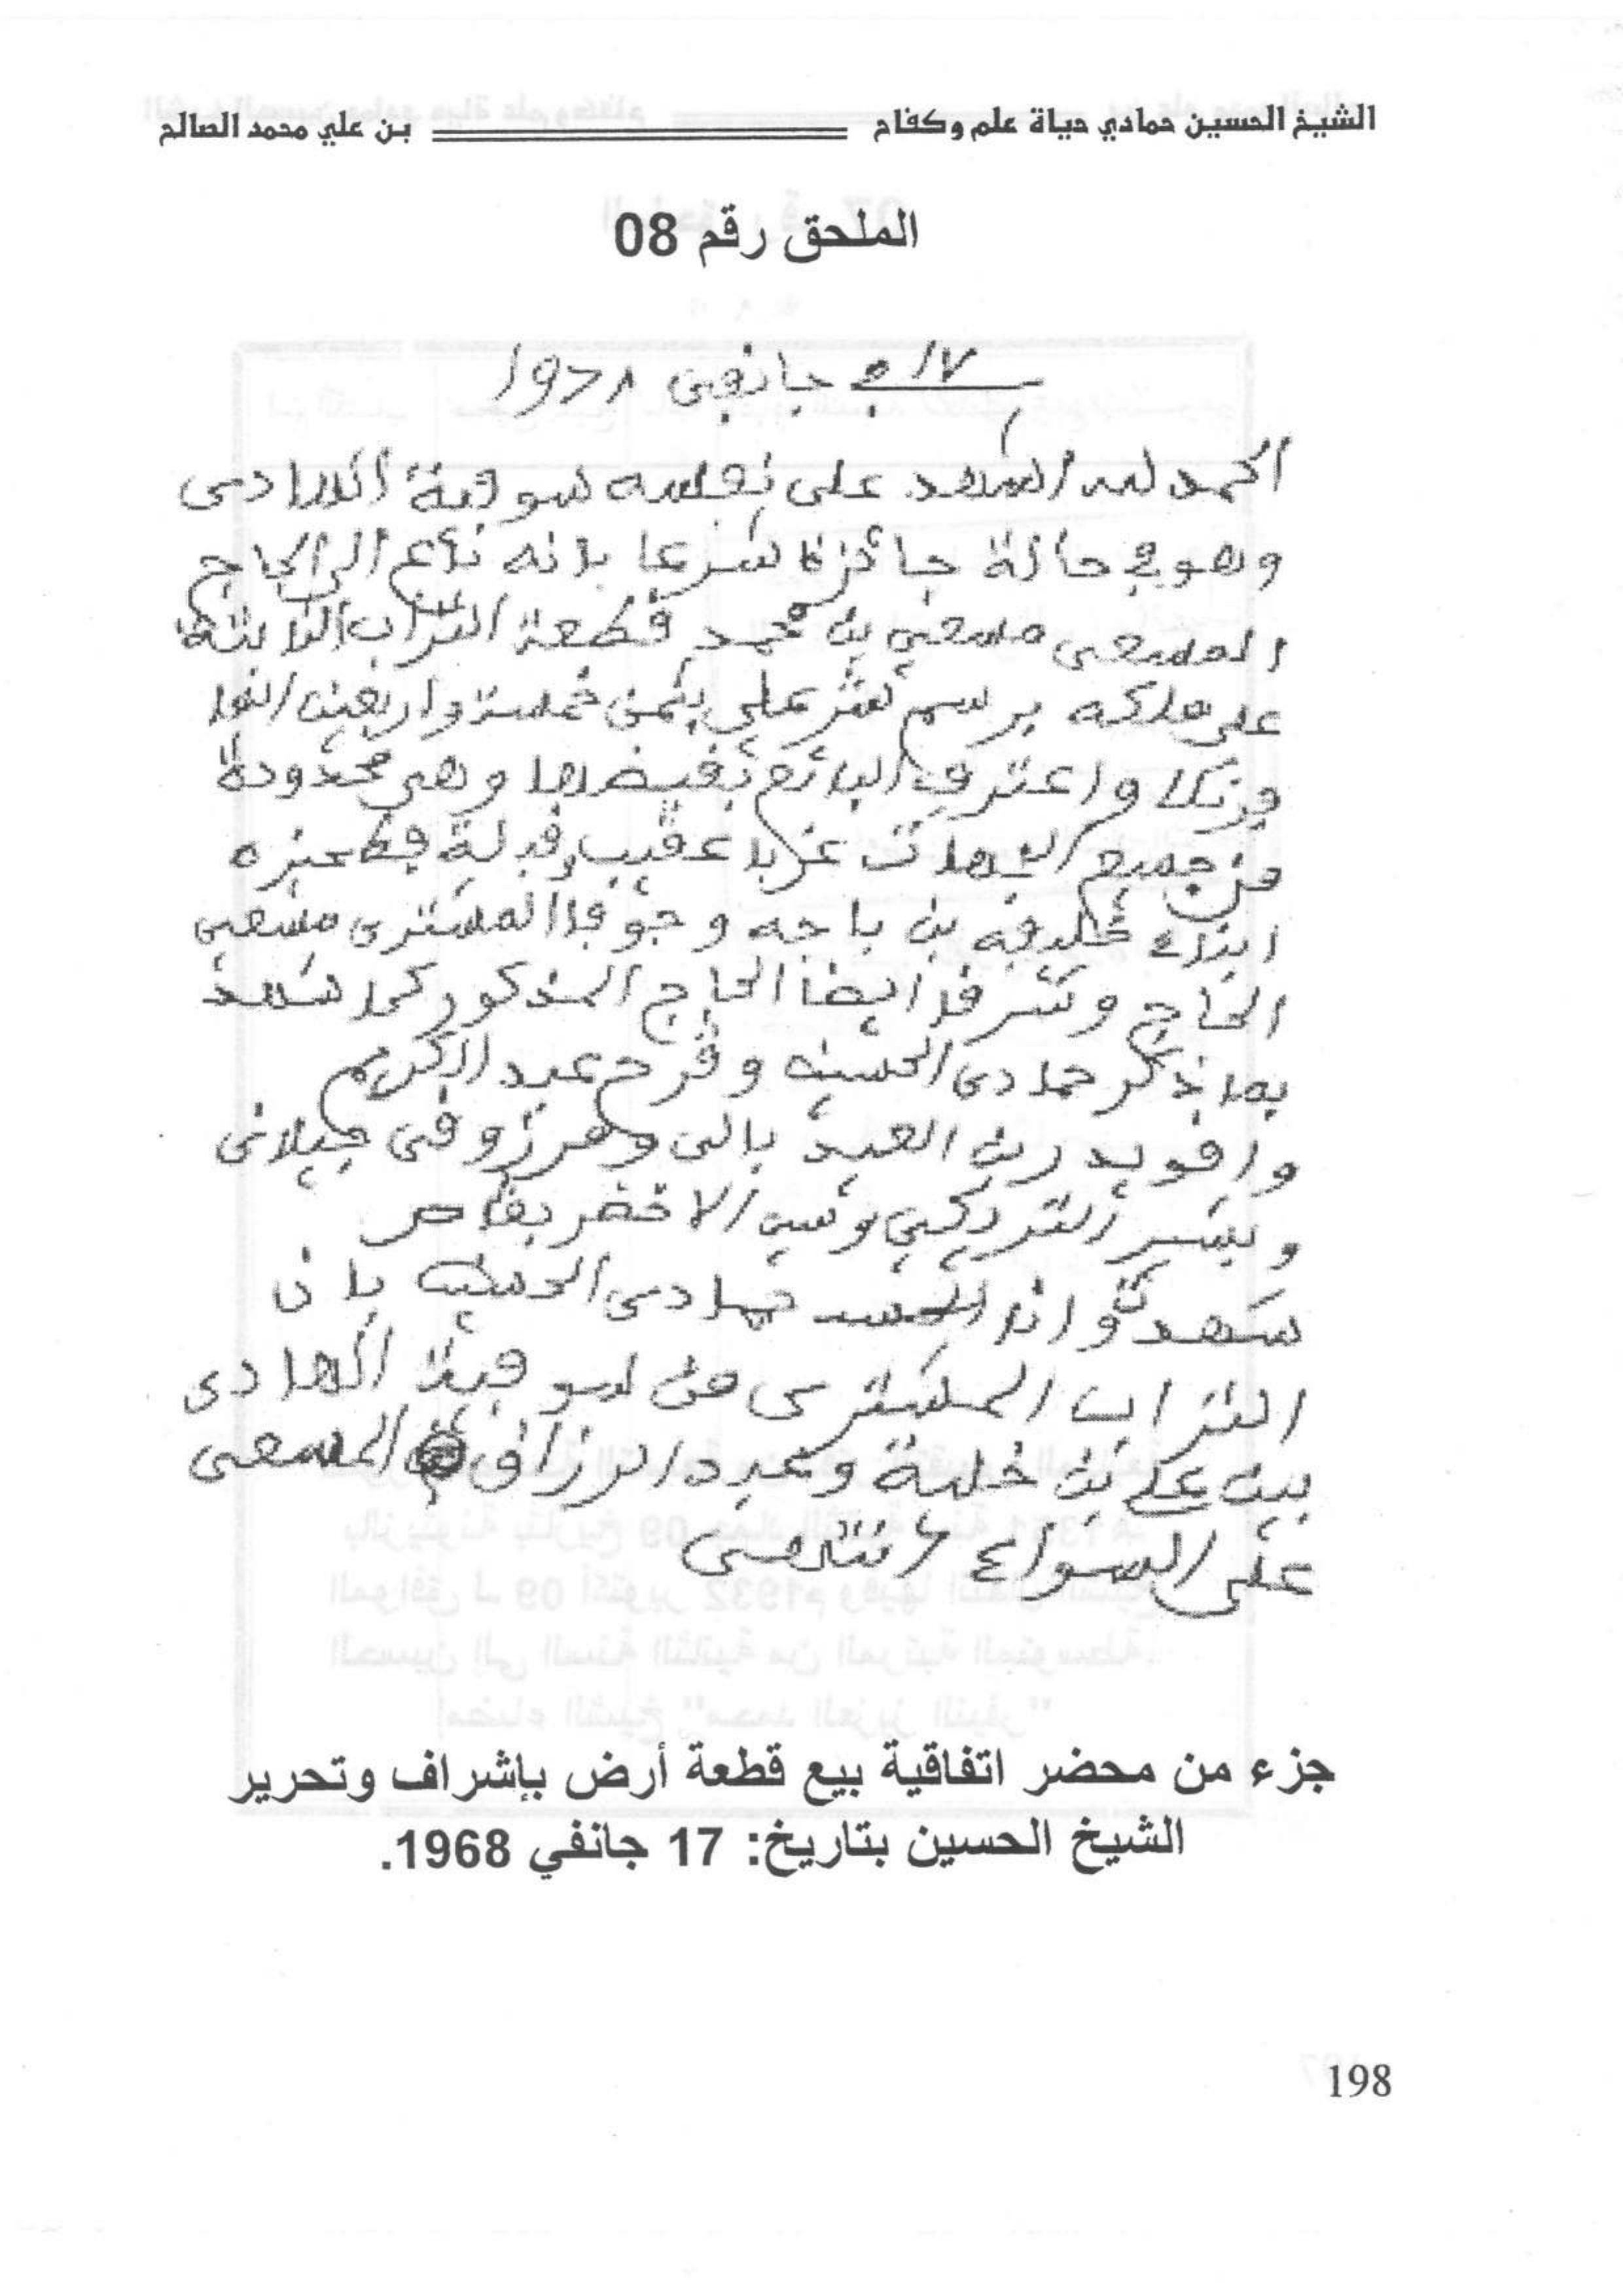 الشيخ الحسين حمادي حياة علم وكفاح بن علي محمد الصالح
الملحق رقم 08
١٧ في جانفي ١٩٦٨
الحمد لله اشهد على نفسه سوفية الهادى
وهو في حالة جائزة شرعا بانه باع الى الحاج
المسعى مسعى بن محمد قطعة التراب الثابتة
على ملكه برسم شرعلي بثمن خمسة واربعين الفا
فرنكا واعترف البائع بقبضها وهى محدودة
من جميع الجهات غربا عقيب وقبلة
ابناء خليفه بن باجه وجوفا المشترى مسعى
الحاج وشرقا ايضا الحاج المذكور كما شهد
بما ذكر حمادى الحسين وفرح عبد الكريم
واقويدر بن العيد بالى ومرزوقى جيلانى
وبشير التردكي الاخضر بقاص
شهد وانا حمادى الحسين بان
التراب المشترى من سوفية الهادى
بين علي بن خلية وعبد الرزاق المسعى
على السواء انتهى
جزء من محضر اتفاقية بيع قطعة أرض بإشراف وتحرير
الشيخ الحسين بتاريخ: 17 جانفي 1968.
198